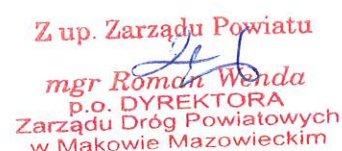 Z up. Zarządu Powiatu
mgr Roman Wenda
p.o. DYREKTORA
Zarządu Dróg Powiatowych
w Makowie Mazowieckim